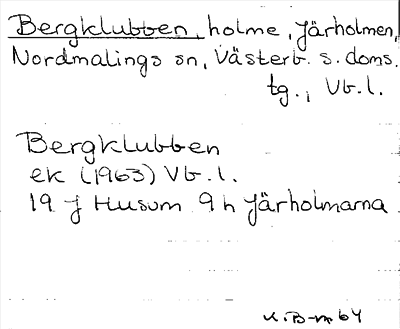 Bergklubben, holme, Järholmen,
Nordmalings sn, Västerb. s. doms.
tg., Vb. l.
Bergklubben
ek (1963) Vb. l.
19 J Husum 9 h Järholmarna
K. B-m 64